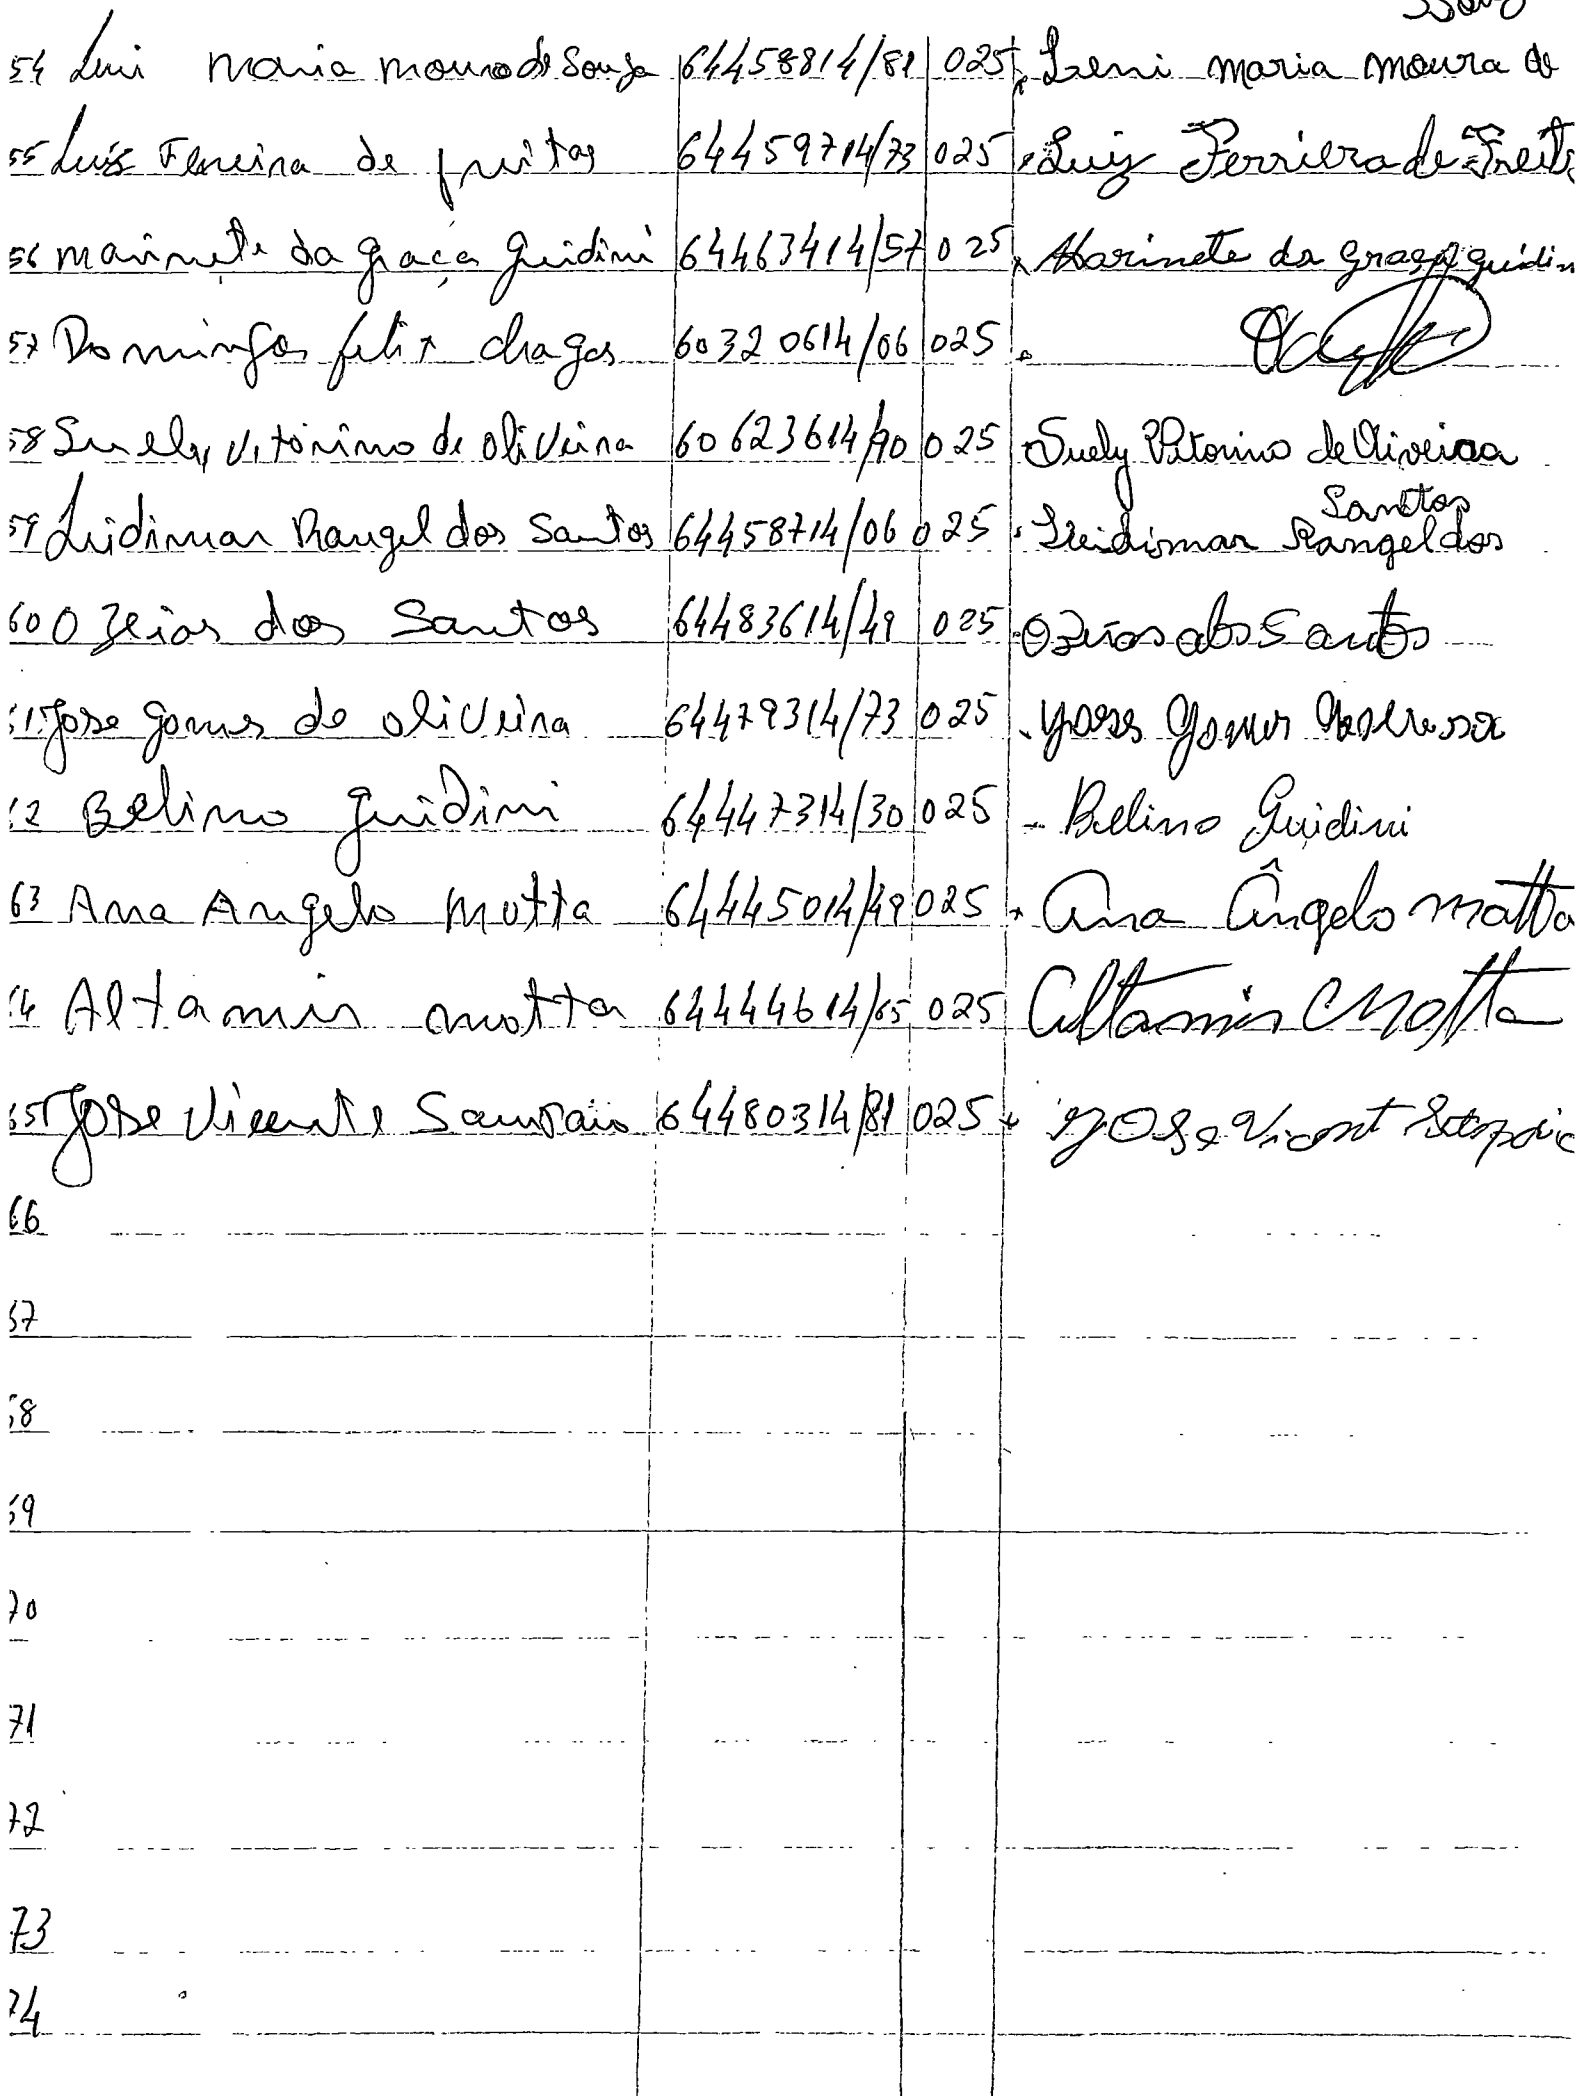 54 Leni Maria Moura de Souza 64458814/81 025 Leni Maria Moura de
55 Luiz Ferreira de freitas 64459714/73 025 Luiz Ferriera de Freit
56 Marinete da Graça Guidini 64463414/57 025 Marinete da Graça Guidin
57 Domingos felix chagas 60320614/06 025
58 Suely Vitorino de oliveira 60623614/90 025 Suely Vitorino de Oliveira
Santos
59 Leidimar Rangel dos Santos 64458714/06 025 Leidimar Rangel dos
60 Ozeias dos Santos 64483614/49 025 Ozeias dos Santos
61 Jose Gomes de oliveira 64479314/73 025
62 Belino Guidini 64447314/30 025 - Belino Guidini
63 Ana Angelo Motta 64445014/49 025 Ana Ângelo Matta
64 Altamir Motta 64444614/65 025 Altamir Motta
65 Jose Vicente Sampaio 64480314/81 025 Jose Vicent
66
67
68
69
70
71
72
73
74